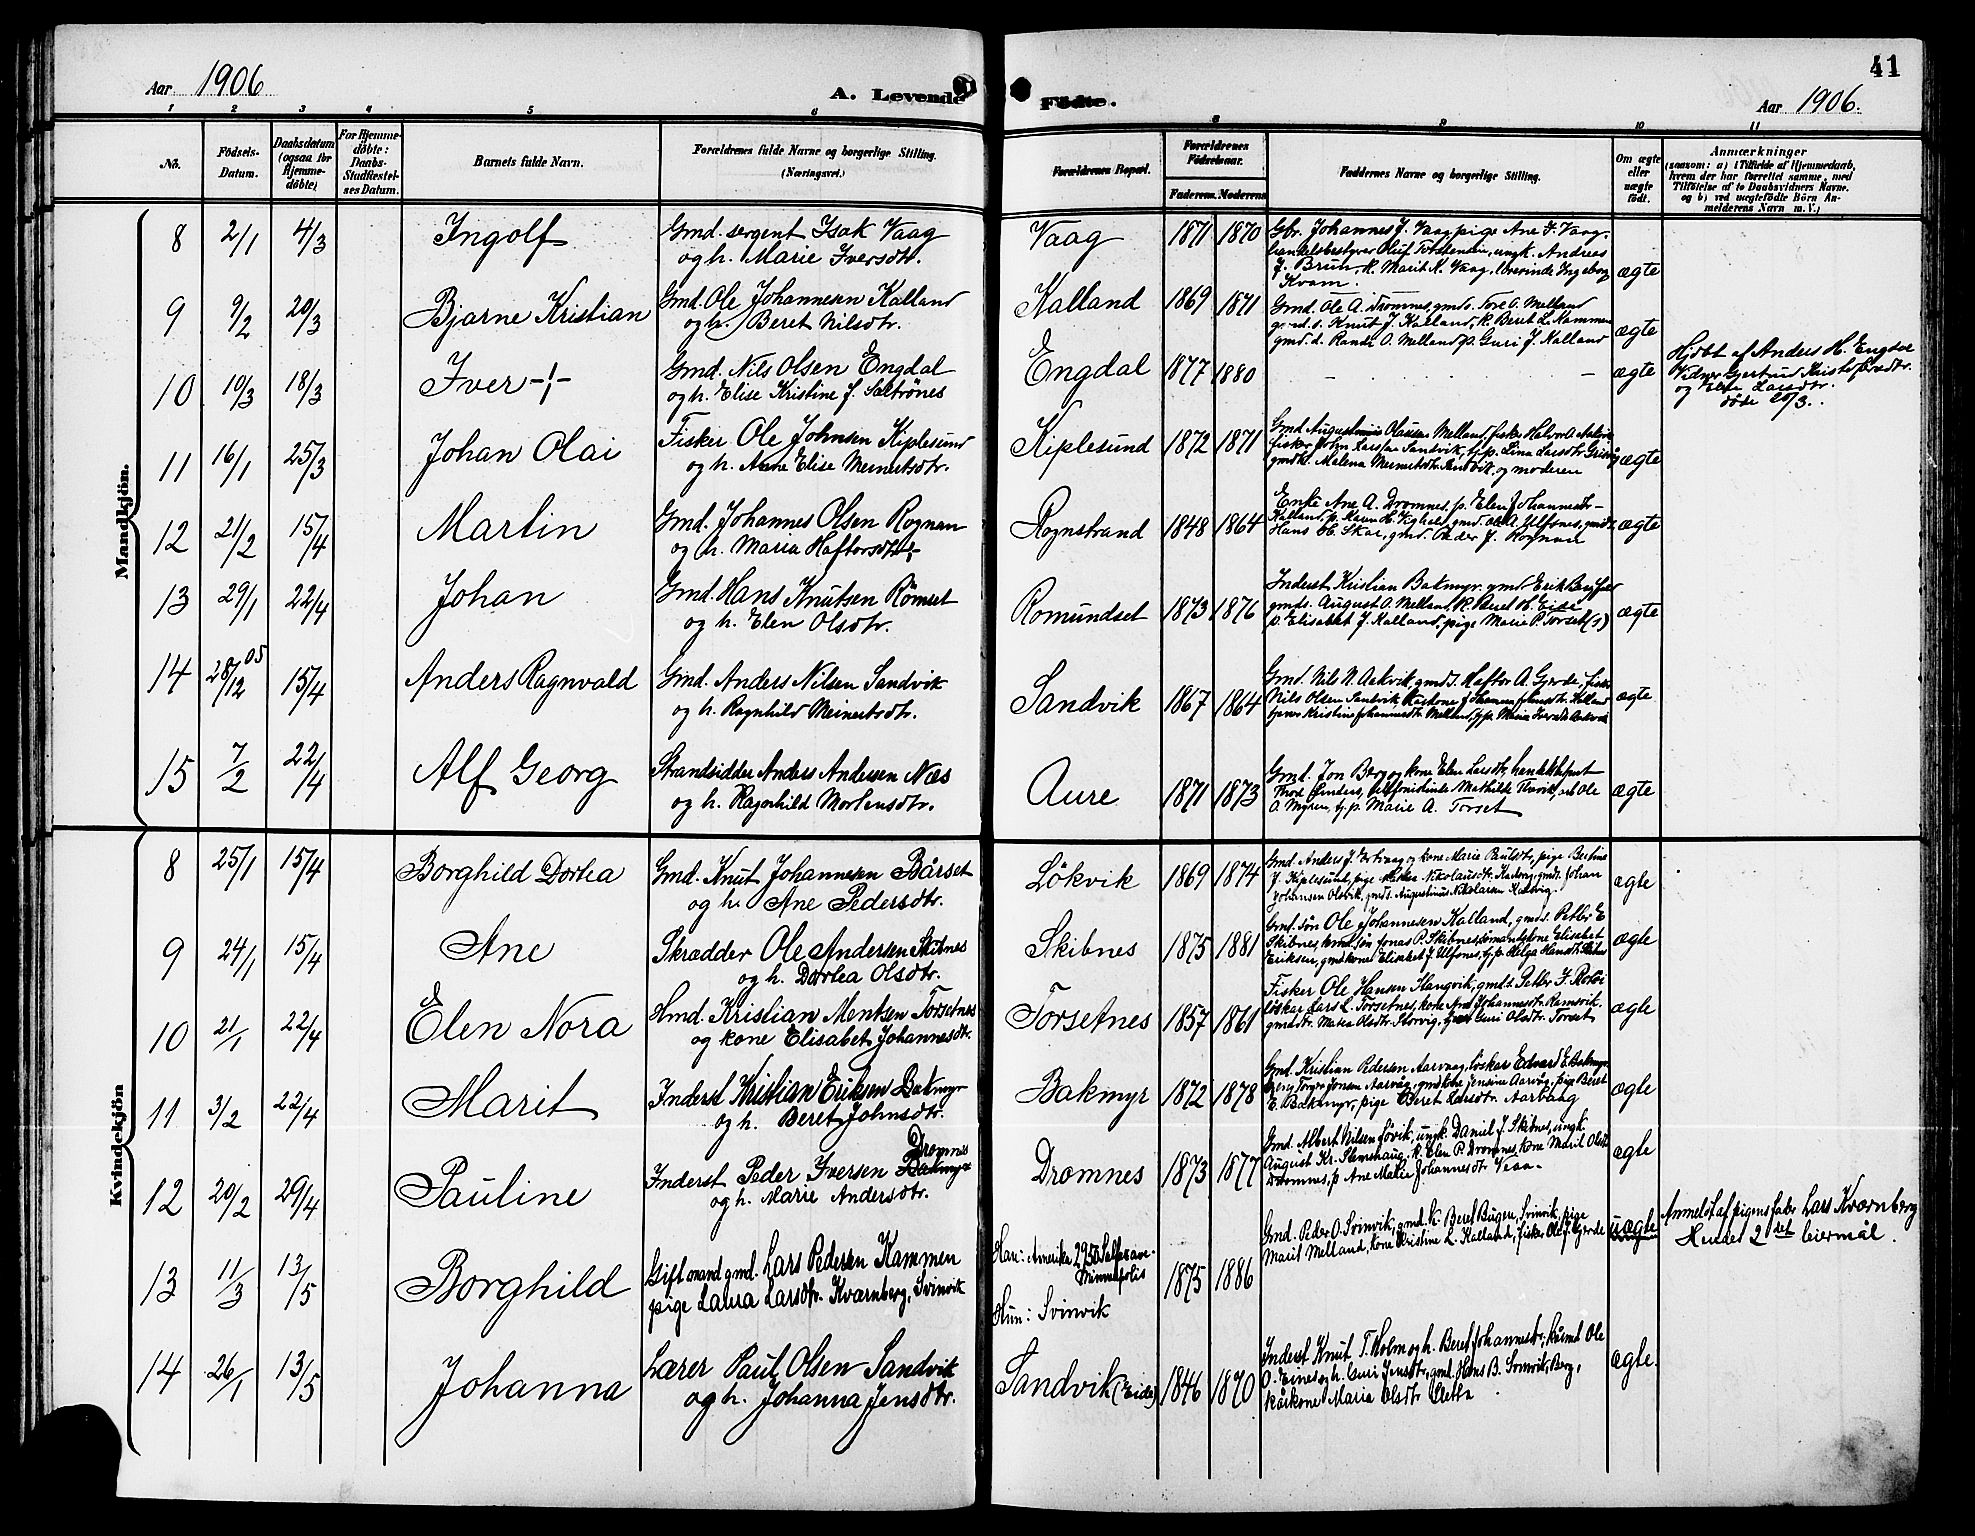 Aar 1906
A. Levende Födte.
41
Aar 1906.
1 2 3 4 5 6 8 9 10 11
No.
Födsels-Datum.
Daabsdatum (ogsaa for Hjemme-döbte)
For Hjemme-döbte: Daabs-Stadfæstel-ses Datum.
Barnets fulde Navn.
Forældrenes fulde Navne og borgerlige Stilling.
(Næringsvei.)
Forældrenes Bopæl.
Forældrenes Födselsaar.
Faderens. Moderens.
Faddernes Navne og borgerlige Stilling.
Om ægte eller uægte födt.
Anmærkninger
(saasom: a) i Tilfælde af Hjemmedaab,
hvem der har forrettet samme, med
Tilföielse af to Daabsvidners Navne.
og b) ved uægtefödte Börn An-
melderens Navn m. V.)
Mandkjön.
8 2/1 4/3 Ingolf Gmd. sergent Isak Vaag
og h. Marie Iversdtr.
Vaag 1871 1870 Gbr. Johannes J. Vaag, pige Ane J. Vaag,
handelsbestyrer Oluf Torstensen, ungk. Andreas
J. Brun, k. Marit K. Vaag, Ingeborg
Kvam.
ægte
9 9/2 20/3 Bjarne Kristian Gmd. Ole Johannesen Kalland
og h. Beret Nilsdtr.
Kalland 1869 1871 Gmd. Ole A. Dromnes, gmds. Tore O. Melland
Knut J. Kalland, k. Beret L. Kammen
gmd. d. Randi O. Melland, p. Guri J. Kalland
ægte
10 10/3 18/3 Iver -!- Gmd. Nils Olsen Engdal
og h. Elise Kristine J. Saltrönes
Engdal 1877 1880 - - - ægte
Hjdbt af Anders H. Engdal
Vidner Gjertrud Kristofersdtr.
og Larsdtr.
döde 20/3.
11 16/1 25/3 Johan Olai Fisker Ole Johnsen Kiplesund
og h. Anne Elise Meinertsdtr.
Kiplesund 1872 1871 Gmd Augustinus Olaussen Melland, fisker Halvor A. Aakvik
fisker John Larssen Sandvik, tj.p. Lina Larsdtr.
gmdk. Malena Meinertsdtr. Sandvik, og moderen
ægte
12 21/2 15/4 Martin Gmd. Johannes Olsen Rognan
og h. Maria Haftorsdtr.
Rognstrand 1848 1864 Enke Ane A. Dromnes, p. Elen Johannesdtr-
Kalland, p. Karen H. gmd. Ole A. Ulfsnes, gmds.
Hans H. Skar, gmd. Peder J. Rognan
ægte
13 29/1 22/4 Johan Gmd. Hans Knutsen Römset
og h. Elen Olsdtr.
Romundset 1873 1876 Inderst Kristian Bakmyr, gmd. Erik
gmds. August O. Melland, k. Beret H. Eide
p. Elisabet J. Kalland, pige Marie P. Torset
ægte
14 28/12 05 15/4 Anders Ragnvald Gmd. Anders Nilsen Sandvik
og h. Ragnhild Meinertsdtr.
Sandvik 1867 1864 Gmd. Nils N. Aakvik, gmds. Haftor A. Gjerde, fisker
Nils Olsen Sandvik, Kaarkone Johannesdtr. Kalland
Kristine Johannesdtr. Melland, tj.p. Maria Iversdtr. Aakvik
ægte
15 7/2 22/4 Alf Georg Strandsidder Anders Andersen Næs
og h. Ragnhild Mortensdtr.
Aure 1871 1873 Gmd. Jon Berg og kone Elen Larsdtr, handelsbest
Thore Linders, telefonistinde Mathilde Flovik, Ole
O. Myren, tj.p. Marie A. Torset
ægte
Kvindekjön
8 25/1 15/4 Borghild Dortea Gmd. Knut Johannesen Bårset
og h. Ane Pedersdtr.
Lökvik 1869 1874 Gmd. Anders J. Ertvaag og kone Marie Paulsdtr, pige Bertine
J. Kiplesund, pige Nikolausdtr. gmds. Johan
Johansen Olsvik, gmds. Augustinus Nikolaisen
ægte
9 24/1 15/4 Ane Skrædder Ole Andersen Skibnes
og h. Dortea Olsdtr.
Skibnes 1875 1881 Gmd. sön Ole Johannesen Kalland, gmds. Petter E
Skibnes, sön Jonas P. Skibnes, kone Elisabet
Eriksen, gmdkone Elisabet J. Ulfsnes, tj.p. Helga Hansdtr.
ægte
10 21/1 22/4 Elen Nora Hmd. Kristian Mentsen Torsetnes
og kone Elisabet Johannesdtr.
Torsetnes 1857 1861 Fisker Ole Hansen Stangvik, gmds. Petter J.
löskar Lars L. Torsetnes, kone Ane Johannesdtr. Ramsvik
gmdtr. Maren Olsdtr. Storvig, Guri Olsdtr. Torset
ægte
11 3/2 22/4 Marit Inderst Kristian Eriksen Bakmyr
og h. Beret Johnsdtr.
Bakmyr 1872 1878 Gmd. Kristian Pedersen Aarvaag, löskar Edvard E. Bakmyr
Jonsen Aarvåg, gmdkone Jensine Aarvåg, pige Beret
E. Bakmyr, pige Beret Larsdtr. Aarvaag
ægte
12 20/2 29/4 Pauline Inderst Peder Iversen Bakmyr Dromnes
og h. Marie Andersdtr.
Dromnes 1873 1877 Gmd. Albert Nilsen Lövik, ungk. Daniel J. Skibnes, ungk.
August Kr. Stemshaug, k. Elen P. Dromnes, kone Marit Olsd
Dromnes, p. Ane Malie Johannesdtr
ægte
13 11/3 13/5 Borghild Gift mand gmd. Lars Pedersen Kammen
pige Laura Larsdtr. Kvarnberg, Svinvik
Han: Amerika 2950
Minneapolis
Hun: Svinvik
1875 1886 Gmd. Peder O. Svinvik, gmd. k. Beret Bugen, Svinvik, pige
Marit Melland, kone Kristine L. Kalland, fisker Ole J. Gjerde
uægte
Anmeldt af pigens fader Lars Kvarnberg
Hendes 2det leiermål.
14 26/1 13/5 Johanna Lærer Paul Olsen Sandvik
og h. Johanna Jensdtr.
Sandvik (Eide) 1846 1870 Inderst Knut T. Holm og h. Beret Johannesdtr, Ole
O. Eines og h. Guri Jensdtr, gmd. Hans B. Berg,
kårkone Maria Olsdtr
ægte.